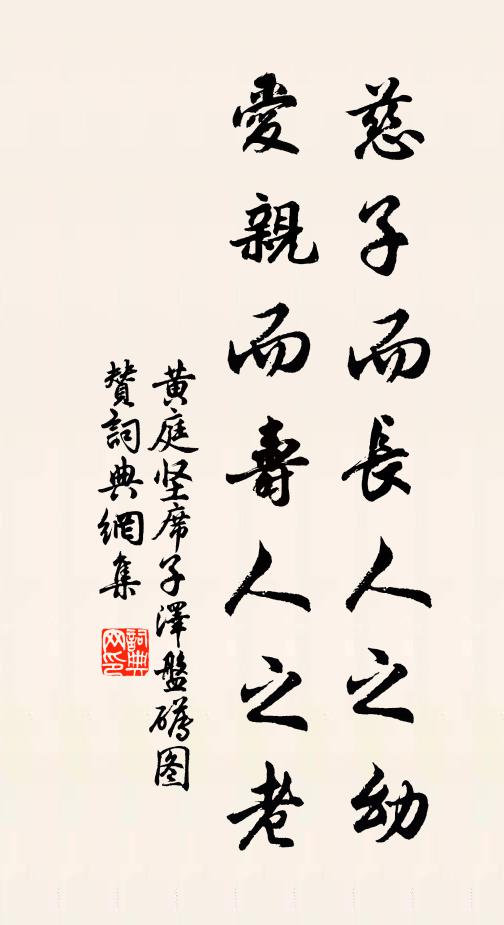 慈子而長人之幼
愛親而壽人之老
黄庭坚席子澤盤礴图
贊詞典網集
詞典網印